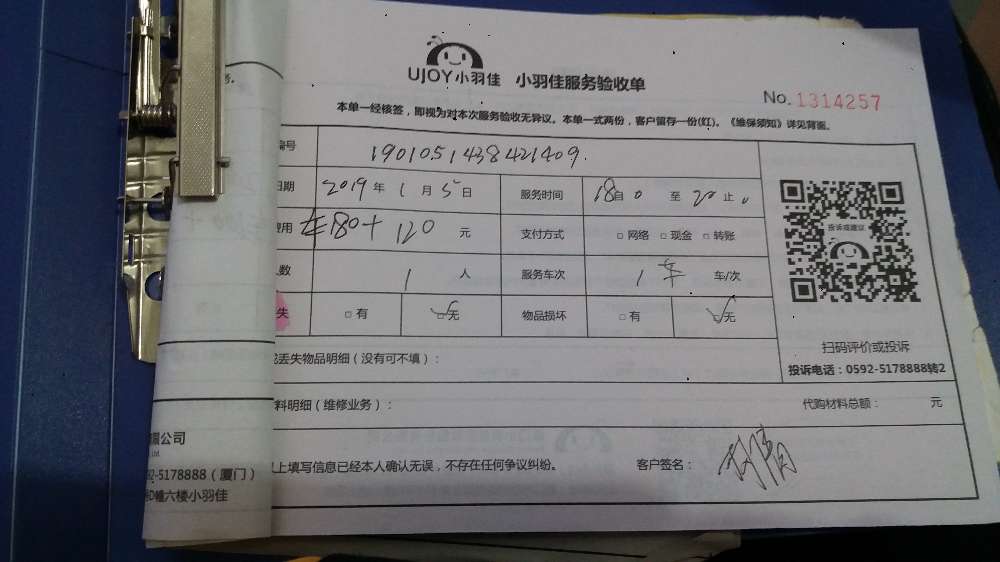 UJOY小羽佳 小羽佳服务验收单
No. 1314257
本单一经核签，即视为对本次服务验收无异议。本单一式两份，客户留存一份(红)。《维保须知》详见背面。
编号 1901051438421409.
日期 2019年1月5日 服务时间 18自0至20止0
费用 车180+120元 支付方式 □网络 □现金 □转账
人数 1人 服务车次 1车 车/次
失 □有 □无 物品损坏 □有 □无
投诉或建议
扫码评价或投诉
投诉电话：0592-5178888转2
丢失物品明细（没有可不填）：
料明细（维修业务）： 代购材料总额： 元
上填写信息已经本人确认无误，不存在任何争议纠纷。 客户签名：
限公司
Ltd.
92-5178888（厦门）
D幢六楼小羽佳